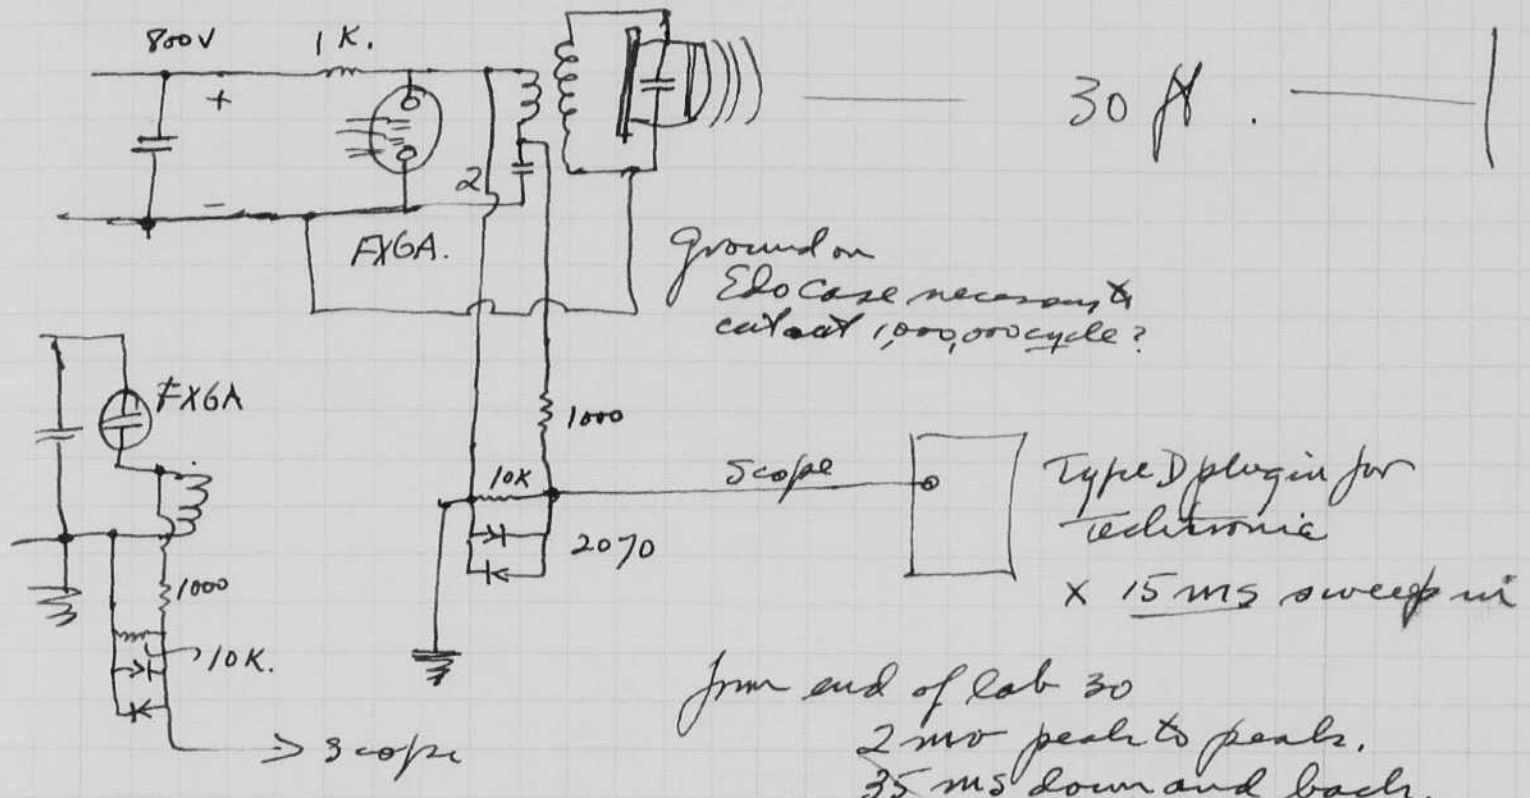 800V
1K.
+
-
2
FX6A.
30 ft.
Ground on
Edo Case necessary to
cut out 1,000,000 cycle?
FX6A
1000
10K
Scope
2070
Type D plugin for
Techtronic
x 15 ms sweep in
1000
10K.
Scope
from end of lab 30
2 mv peak to peak.
35 ms down and back.